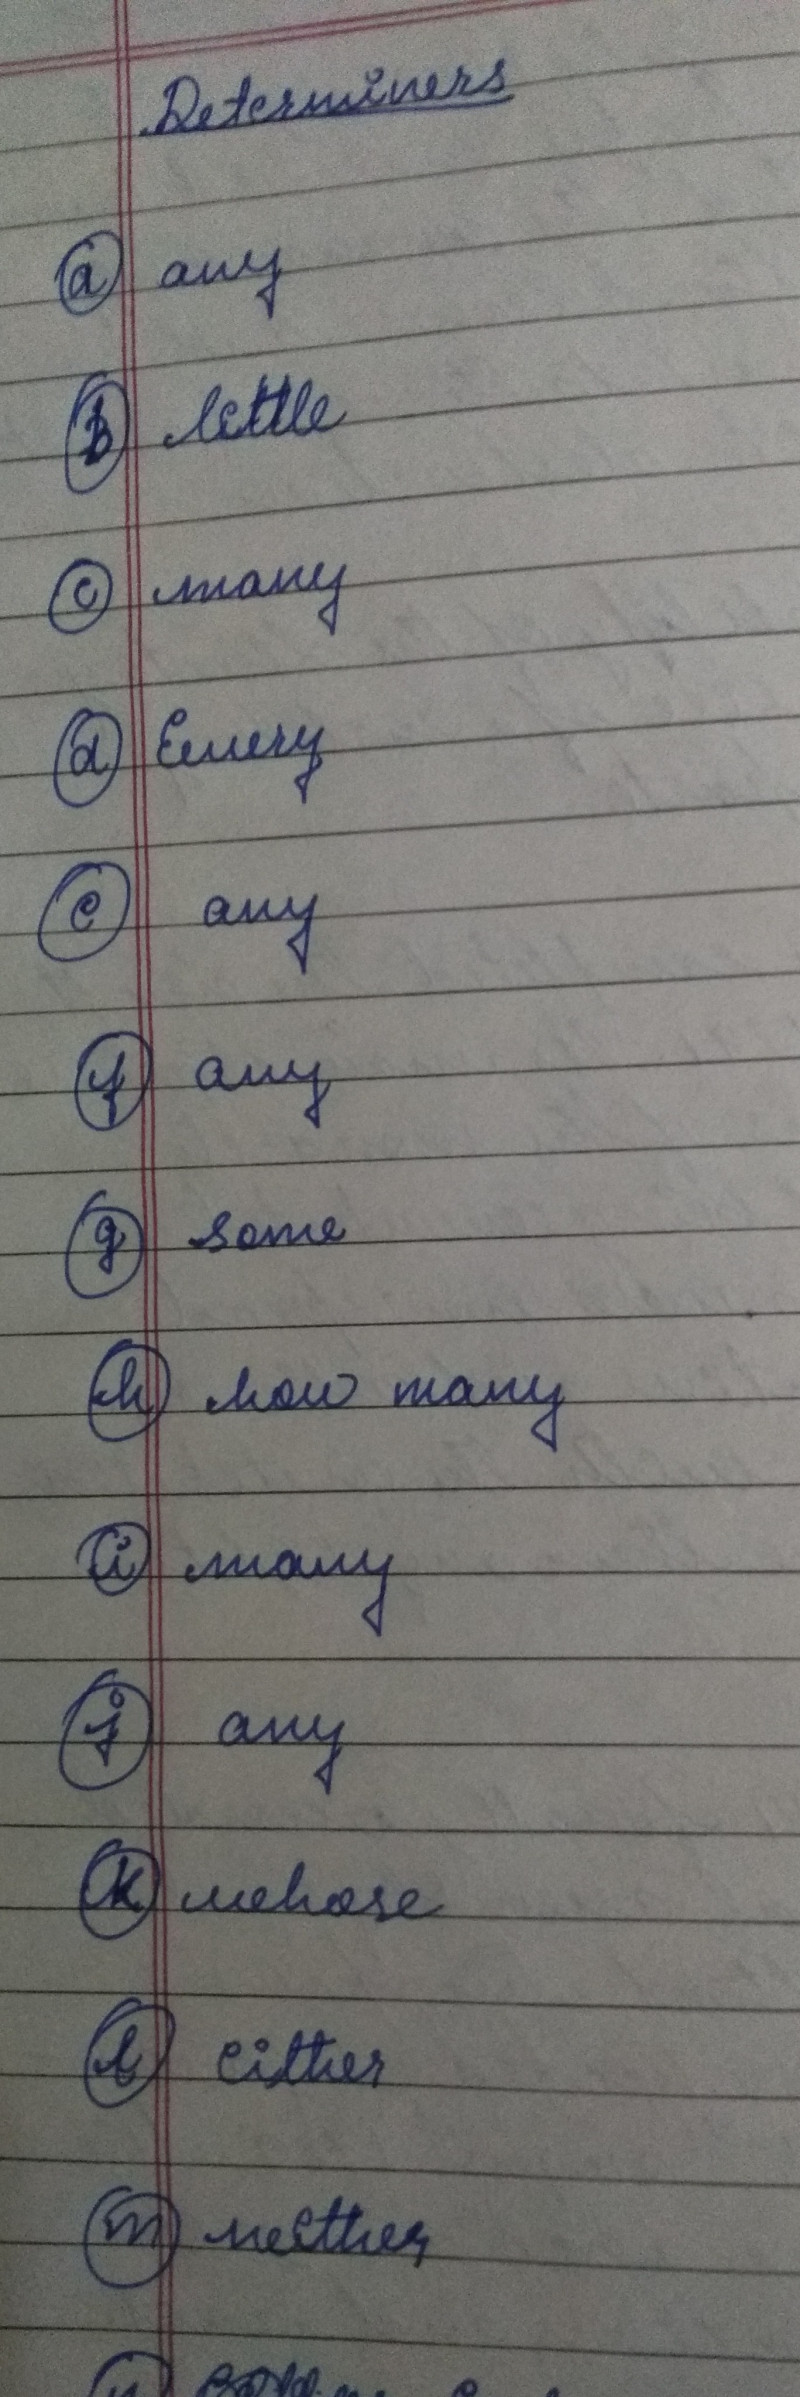 Determiners
(a) any
(b) little
(c) many
(d) Every
(e) any
(f) any
(g) some
(h) how many
(i) many
(j) any
(k) whose
(l) either
(m) neither
(n)